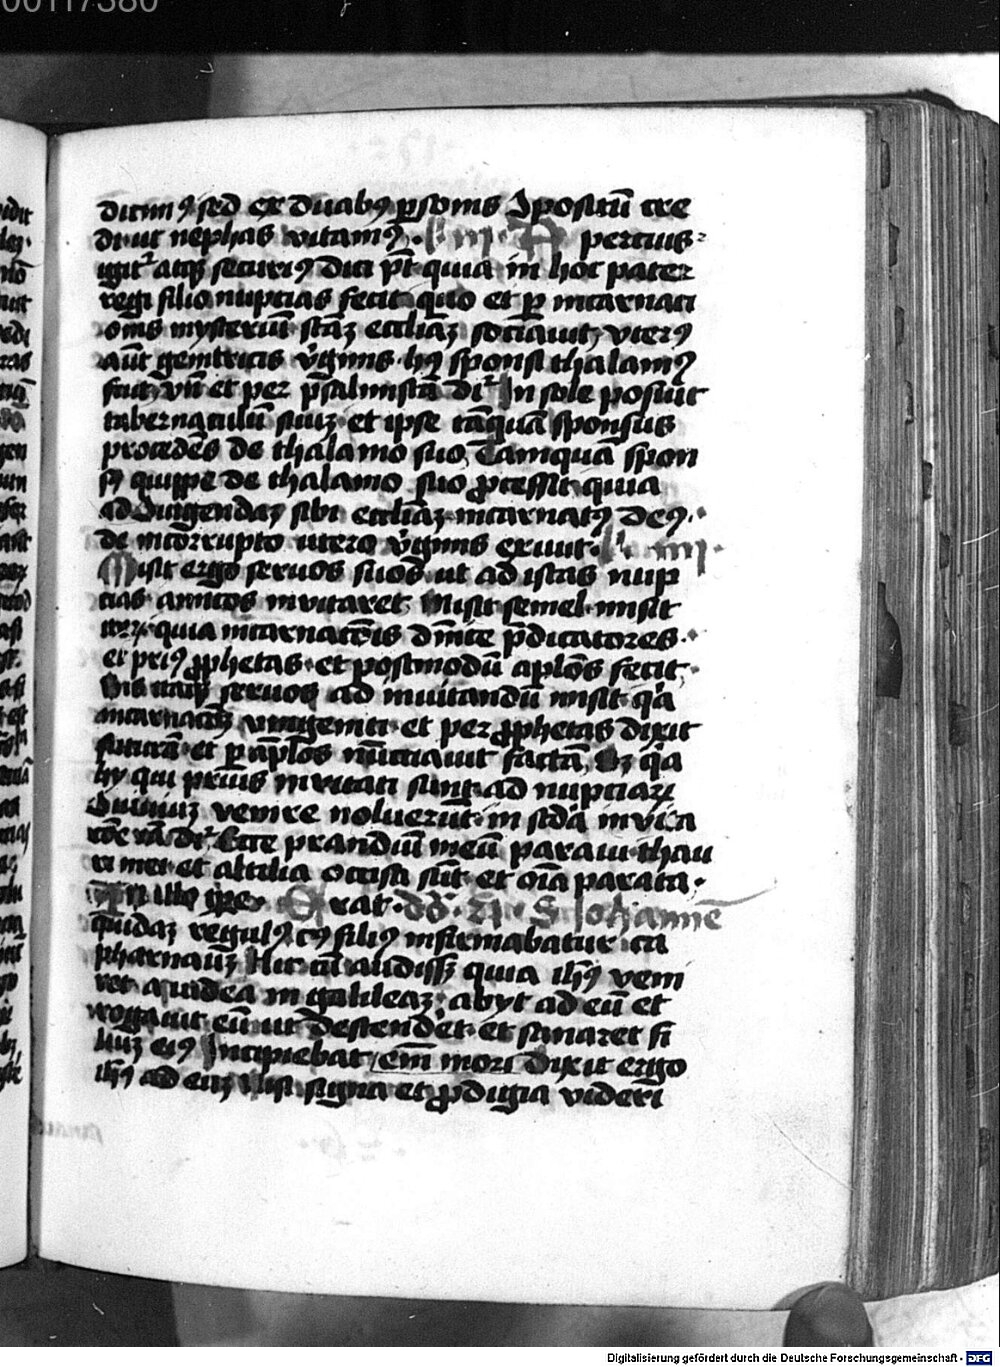 00117380
dicim9 sed ex duab9 p̱sonis Ipositū cre
di ut nephas vitam9. L iij. A pertius
igit᷑ atq̢ securi9 dici pt̄ quia in hoc pater
regi filio nuptias fecit quo et p̱ incarnati
onis mysteriū stāz eccliāz sociauit, vter9
aūt genitricis v̓ginis h9 sponsi thalam9
fuit, vñ et per p̄salmistā dī᷑ In sole posuit
tabernaculū suuz et ipse tāquā sponsus
procedēs de thalamo suo, Tamquā spon
s9 quippe de thalamo suo ꝓcessit quia
ad iungendaz sibi eccliāz incarnat9 de9.
de incorrupto utero v̓ginis exiuit. L iiij.
Misit ergo seruos suos ut ad istas nup
cias amicos inuitaret, Misit semel misit
itez quia incarnatōis dn̄ice p̄dicatores
et pri9 ꝓphetas et postmodū aplōs fecit,
Bis itaq̢ seruos ad inuitandū misit q̄a
incarnacōz vnigeniti et per ꝓphetas dixit
futurā et p̱ aplōs nūciauit factā, Sz q̄a
hy qui prius invitati sunt ad nuptiarū
conuiuiuz venire noluerūt in scdā invita
cōe iā dī᷑ Ecce prandiū meū paraui thau
ri mei et altilia occisa sūt et oīa parata.
In illo tp̄e. Erat. dō. xxi. S Iohannē
quidaz regul9 c9 fili9 infirmabatur ca
pharnauz Hic cū audissz quia ihs9 veni
ret a iudea in galileaz, abyt ad eū et
rogauit eū ut descendēt et sanaret fi
liuz ei9 Incipiebat em̄ mori Dixit ergo
ihs9 ad euz Nisi signa et ꝓdigia videri
Digitalisierung gefördert durch die Deutsche Forschungsgemeinschaft - DFG